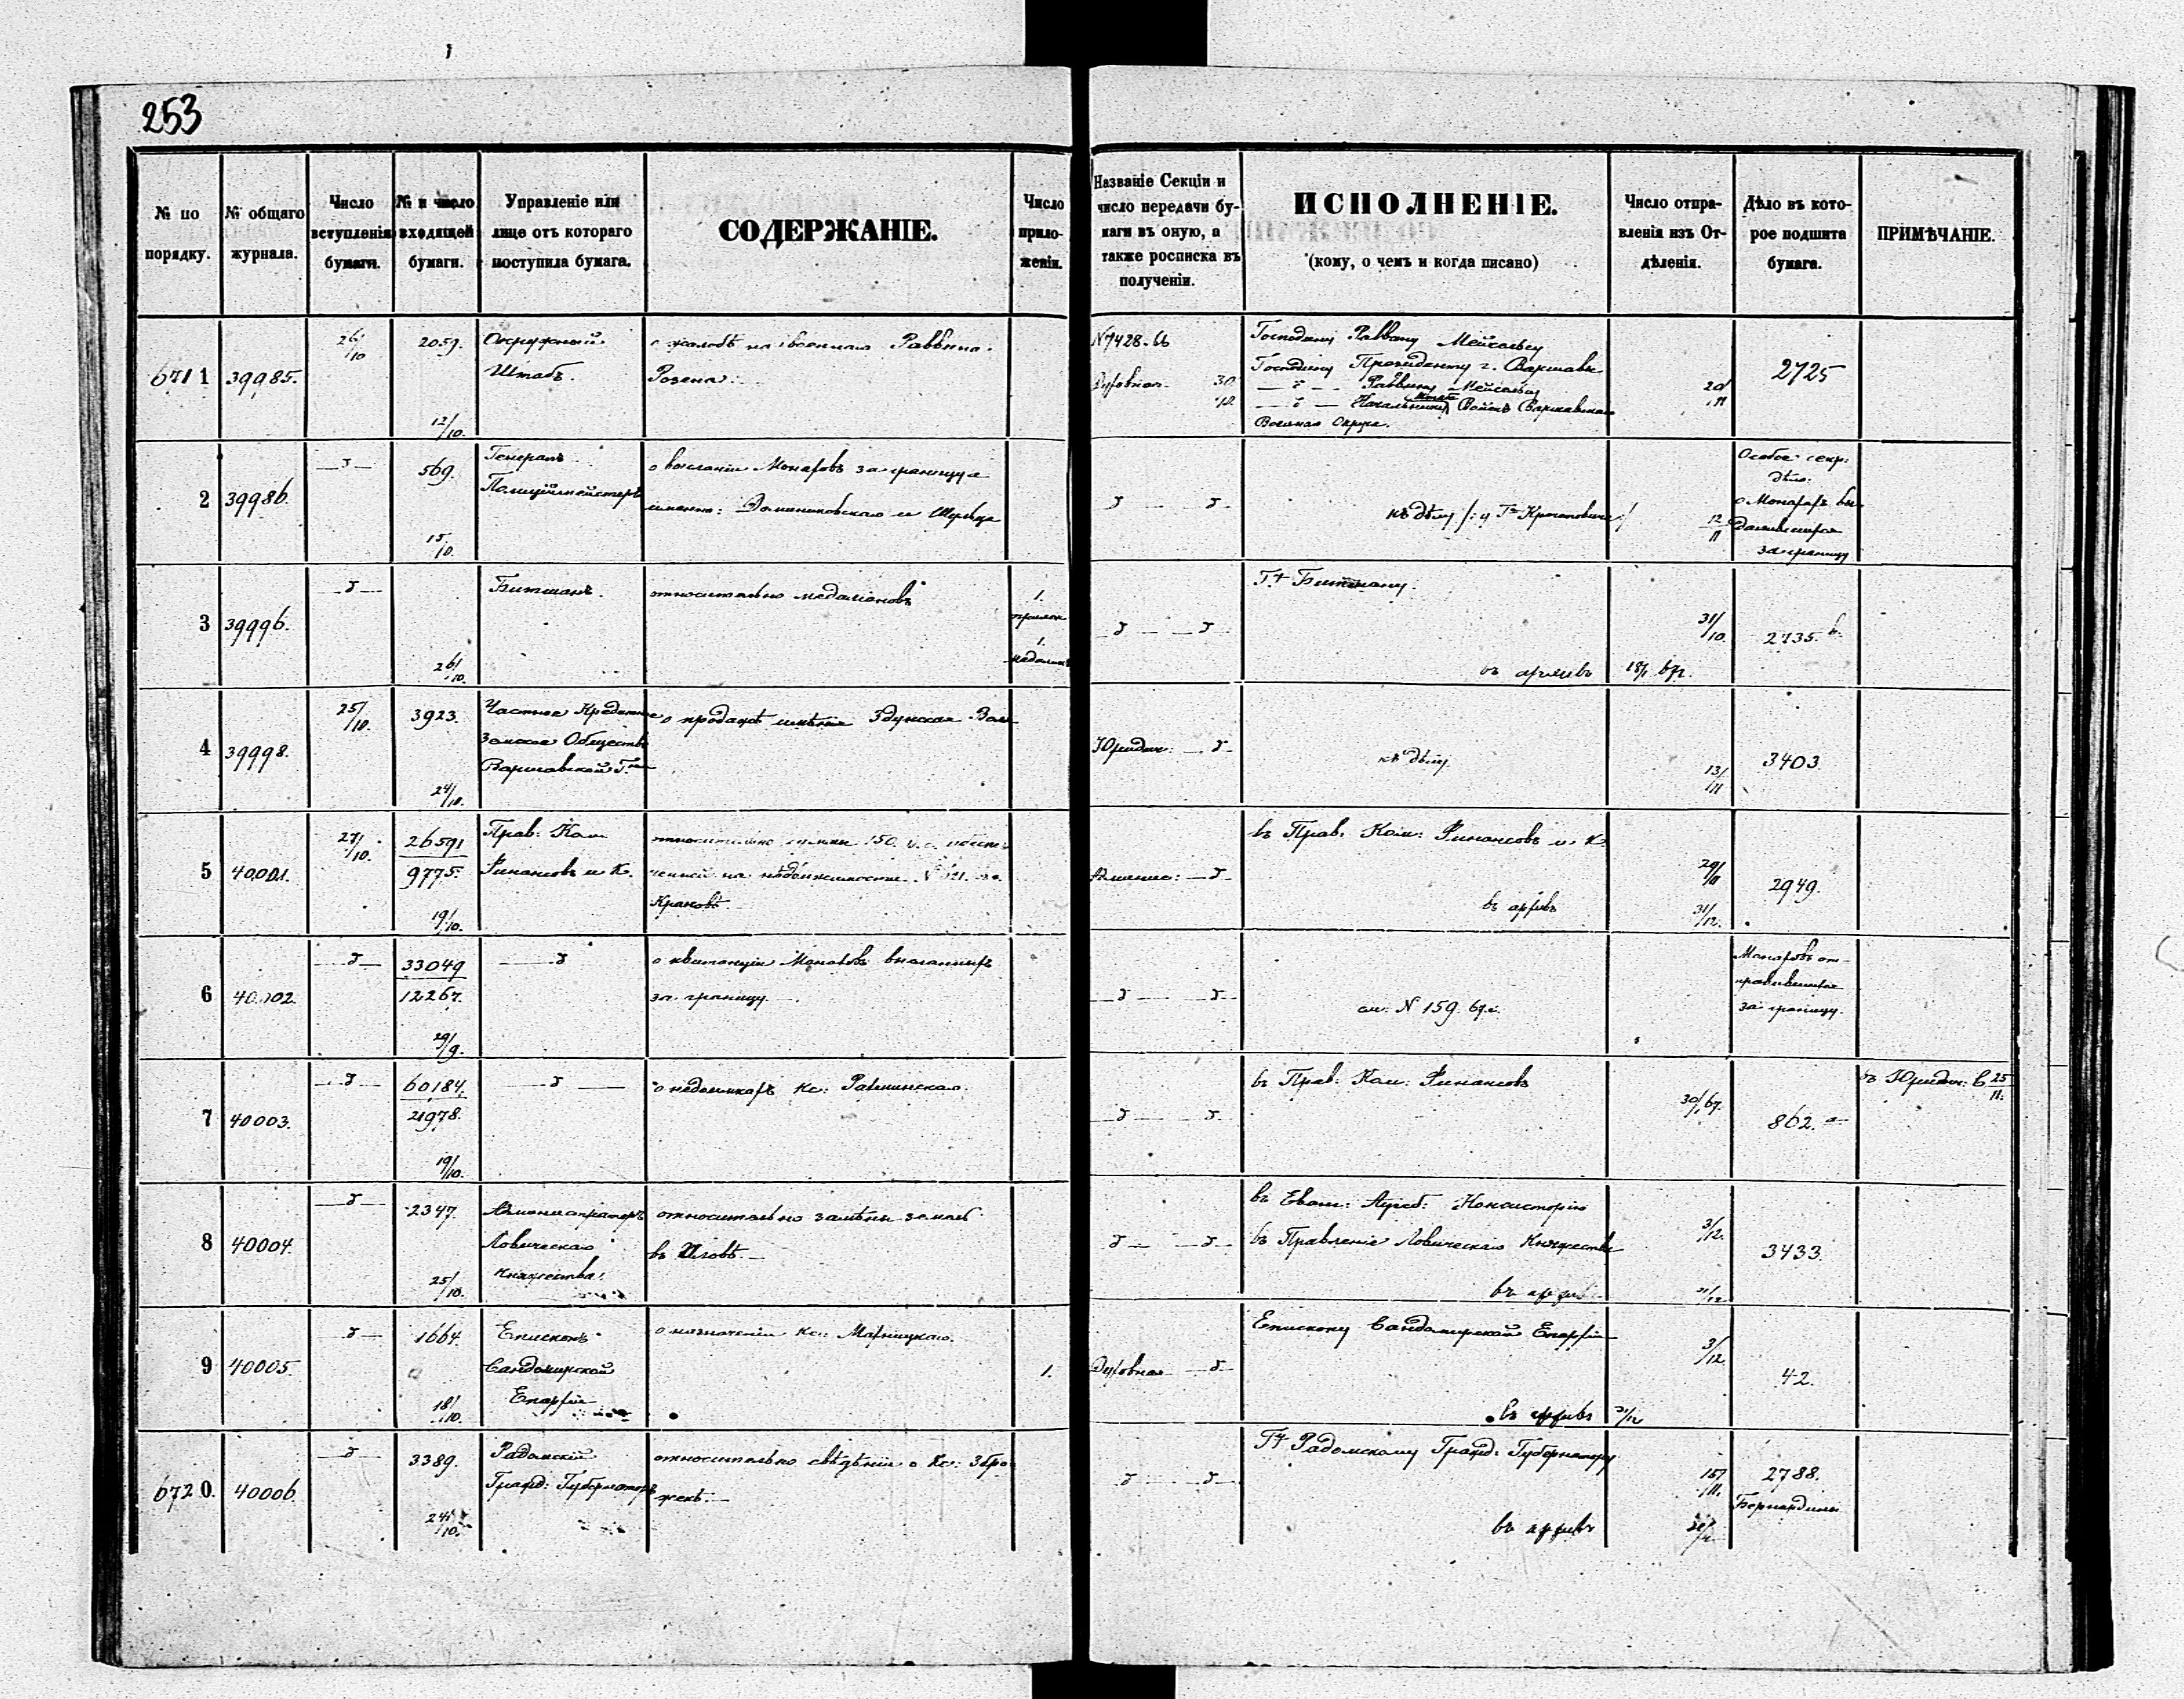 253
№ по порядку.
№ общаго журнала.
Число вступленія бумаги.
№ и число входящей бумаги.
Управленіе или лице отъ котораго поступила бумага.
СОДЕРЖАНІЕ.
Число приложеній.
Названіе Секціи и число передачи бумаги въ оную, а также росписка въ полученіи.
ИСПОЛНЕНІЕ.
(кому, о чемъ и когда писано)
Число отправленія изъ Отдѣленія.
Дѣло въ которое подшита бумага.
ПРИМѢЧАНІЕ.
6711
39985.
26/10
2059.
12/10.
Окружный
Штабъ.
о жалобѣ на военнаго Раввина
Розена.
N 7428.66
Духовная 30/10.
Господину Раввину Мейзельсу
Господину Президенту г. Варшавы
Раввину Мейзельсу
Войскъ Варшавскаго
Военнаго Округа.
20/11
2725
2
39986.
569.
15/10.
Генералъ
Полицiймейстеръ
о высланіи Монаховъ за границу
именно:
къ дѣлу
12/11
Особое секр:
дѣло.
о Монахахъ
за границу
3
39996.
26/10.
Битманъ.
относительно медаліоновъ
1.
прилож.
1.
Гну Битману.
въ архивъ
31/10.
18/1 67г.
2735
4
39998.
25/10.
3923.
24/10.
Частное Кредитное
Земское Общество
Варшавской Гіи
о продажѣ имѣнія Здунская Воля
Юридич:
къ дѣлу.
13/11
3403.
5
40001.
27/10.
26591
9775.
19/10.
Прав: Ком.
Финансовъ и К.
относительно суммы 150.
на недвижимости N 121.
въ Прав. Ком: Финансовъ и К.
въ архивъ
29/11
31/12.
2949.
6
40002.
33049
12267.
29/9.
о квитанціи Монаховъ высланныхъ
за границу.
см. N 159. 67г.
Монаховъ от-
правившихся
за границу.
7
40003.
60184.
21978.
19/10.
о недоимкахъ Кс:
въ Прав: Ком: Финансовъ
30/1 67.
862. а
въ Юридич: С. 25/11.
8
40004.
2347.
25/10.
Администраторъ
Ловическаго
Княжества.
относительно замѣны земель
въ Иловѣ.
въ Еванг: Аугсб: Консисторію
въ Правленіе Ловическаго Княжества
въ архив
3/12.
31/12
3433.
9
40005.
1664.
18/10.
Епископъ
Сандомирской
Епархіи
о назначеніи Кс:
1.
Духовная
Епископу Сандомирской Епархіи
въ архивъ
3/12
31/12
42.
6720.
40006.
3389.
24/10.
Радомскій
Гражд: Губернаторъ
относительно свѣдѣній о Кс: Збро-
жекъ.
Гну Радомскому Гражд: Губернатору
въ архивъ
15/11.
2788.
Бернардины